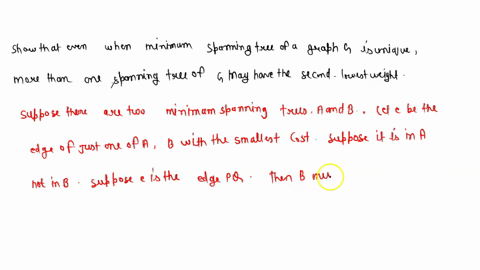 Show that even when minimum Spanning tree of a graph G is unique,
more than one spanning tree of G may have the second. lowest weight.
Suppose there are two minimum spanning trees. A and B. Let e be the
edge of just one of A, B with the smallest Cost. Suppose it is in A
not in B. Suppose e is the edge PQ. Then B mus